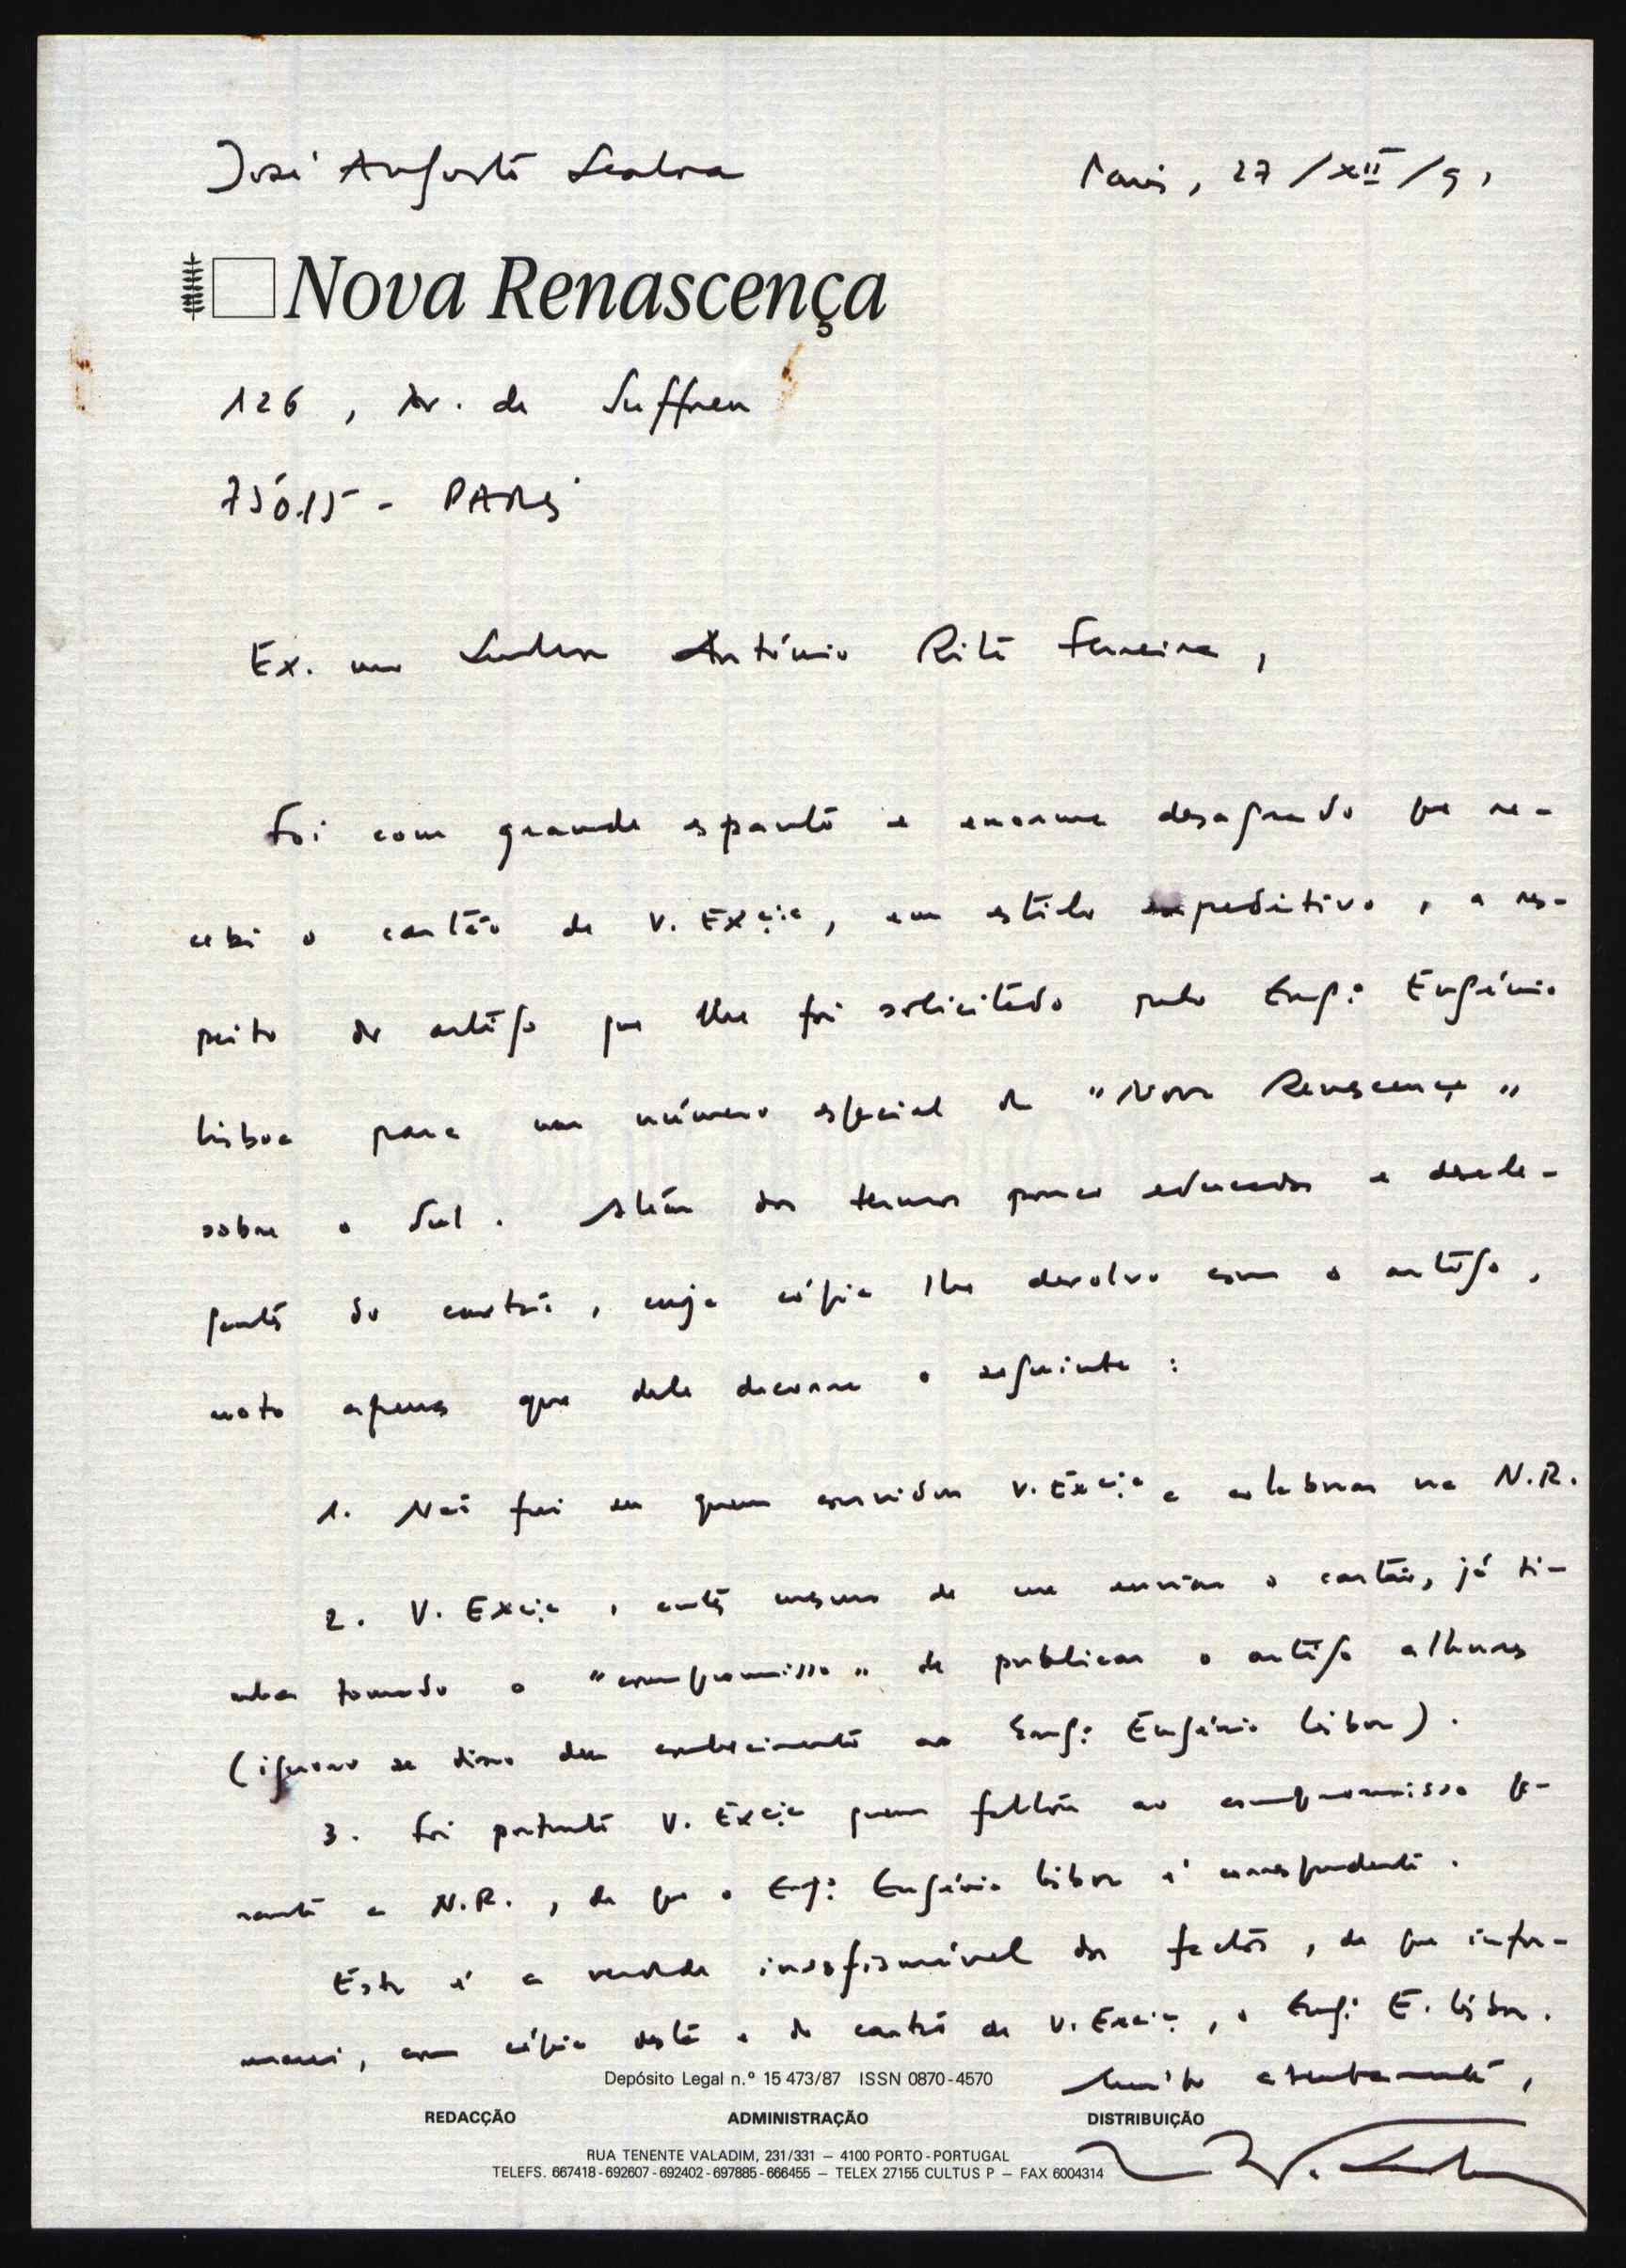 José Augusto Seabra
Paris, 27/XII/91
Nova Renascença
126, Av. de Suffren
75015 - PARIS
Ex.mo Senhor António Rita Ferreira,
Foi com grande espanto e enorme desagrado que re-
cebi o cartão de V. Excia, em estilo expeditivo, a res-
peito do artigo que lhe foi solicitado pelo Engº Eugénio
Lisboa para um número especial da "Nova Renascença"
sobre o Sul. Além dos termos pouco educados e desele-
gantes do cartão, cuja cópia lhe devolvo com o artigo,
noto apenas que dele decorre o seguinte:
1. Não fui eu quem convidou V. Excia a colaborar na N.R.
2. V. Excia, antes mesmo de me enviar o cartão, já ti-
nha tomado o "compromisso" de publicar o artigo alhures
(ignoro se disso deu conhecimento ao Engº Eugénio Lisboa).
3. Foi portanto V. Excia quem faltou ao compromisso pe-
rante a N.R., de que o Engº Eugénio Lisboa é correspondente.
Esta é a verdade insofismável dos factos, de que infor-
marei, com cópia desta e do cartão de V. Excia, o Engº E. Lisboa.
Muito atentamente,
Depósito Legal n.º 15 473/87 ISSN 0870-4570
REDACÇÃO ADMINISTRAÇÃO DISTRIBUIÇÃO
RUA TENENTE VALADIM, 231/331 — 4100 PORTO-PORTUGAL
TELEFS. 667418-692607-692402-697885-666455 — TELEX 27155 CULTUS P — FAX 6004314